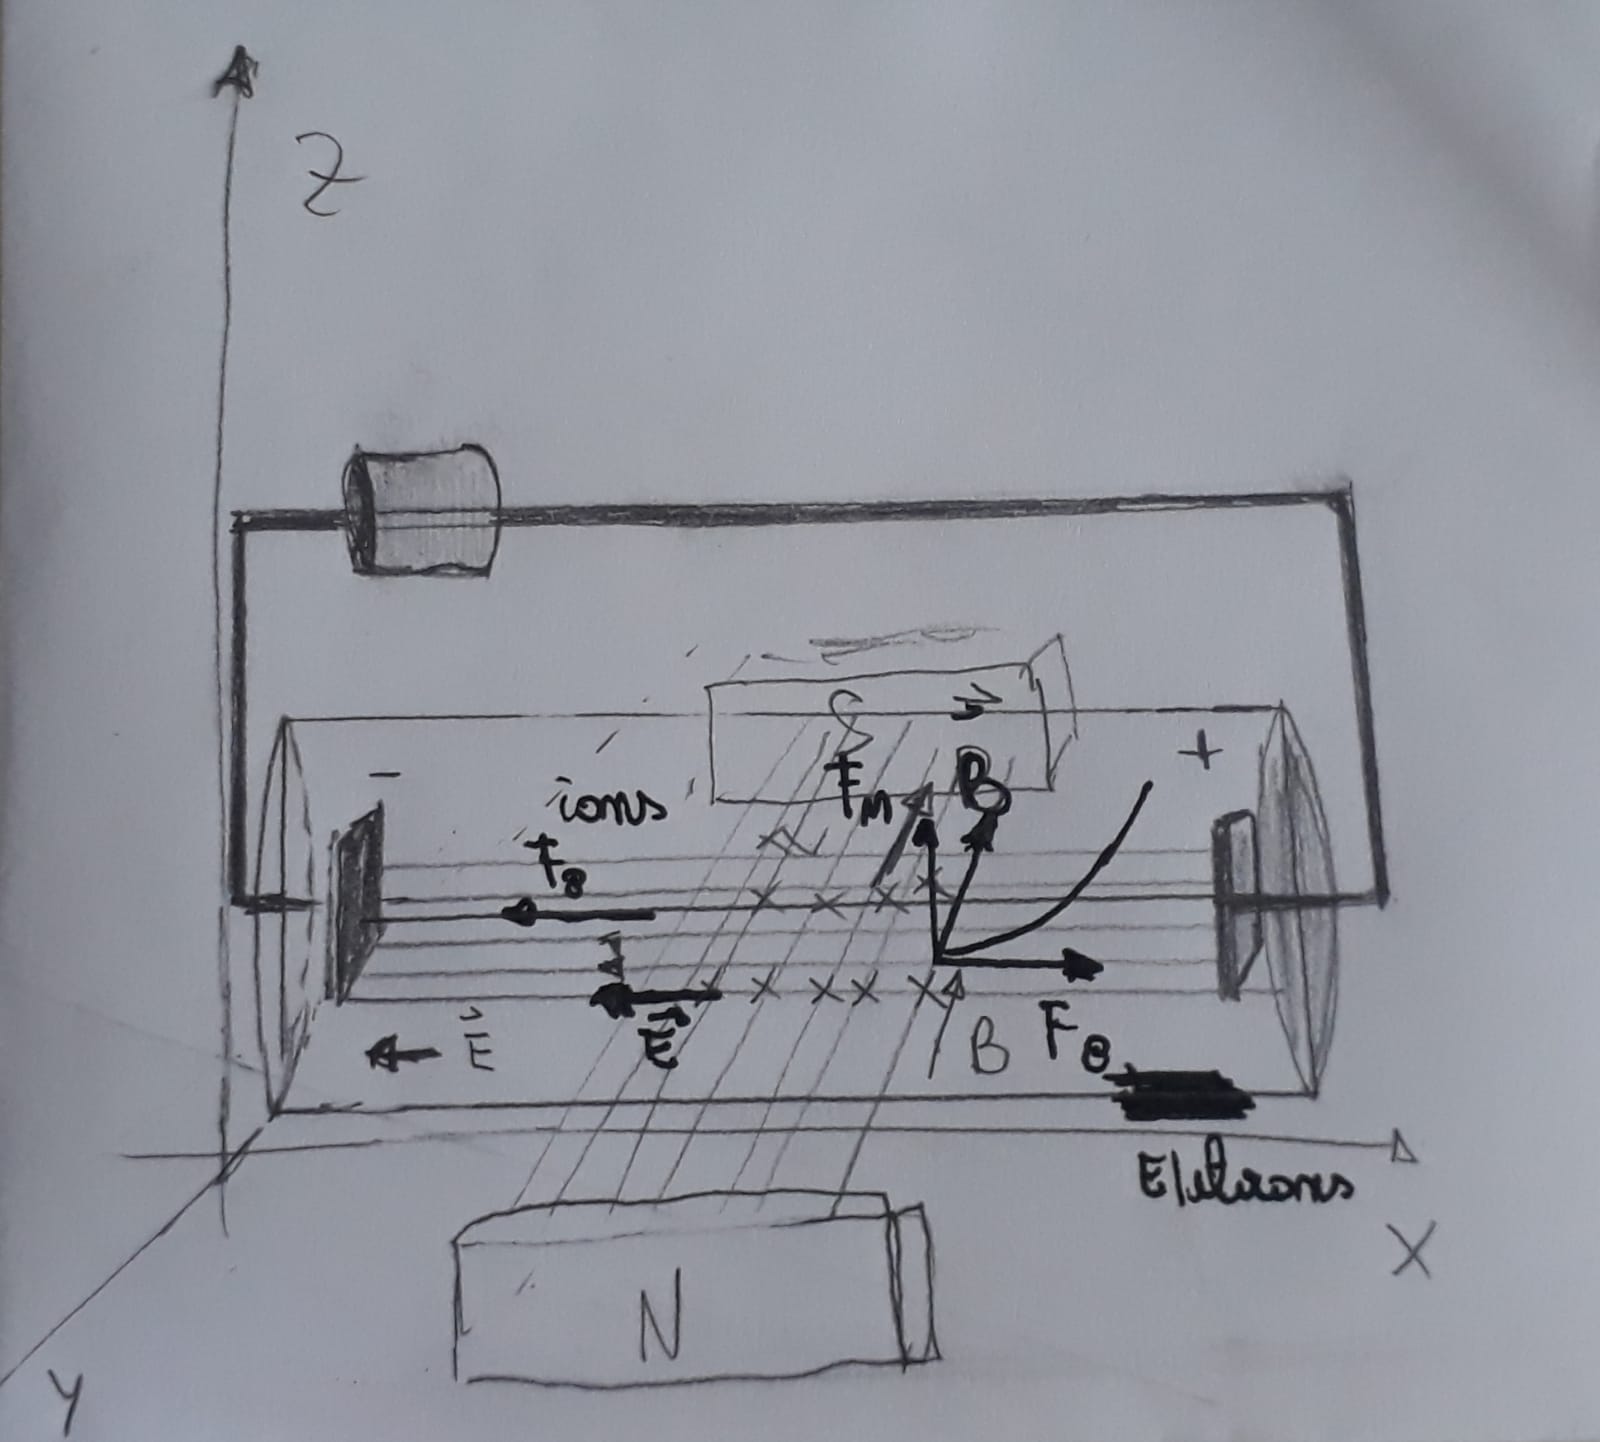 Z
S
-
+
ions
F_M
B
F_e
E
E
B
F_e
Eletrons
X
N
Y